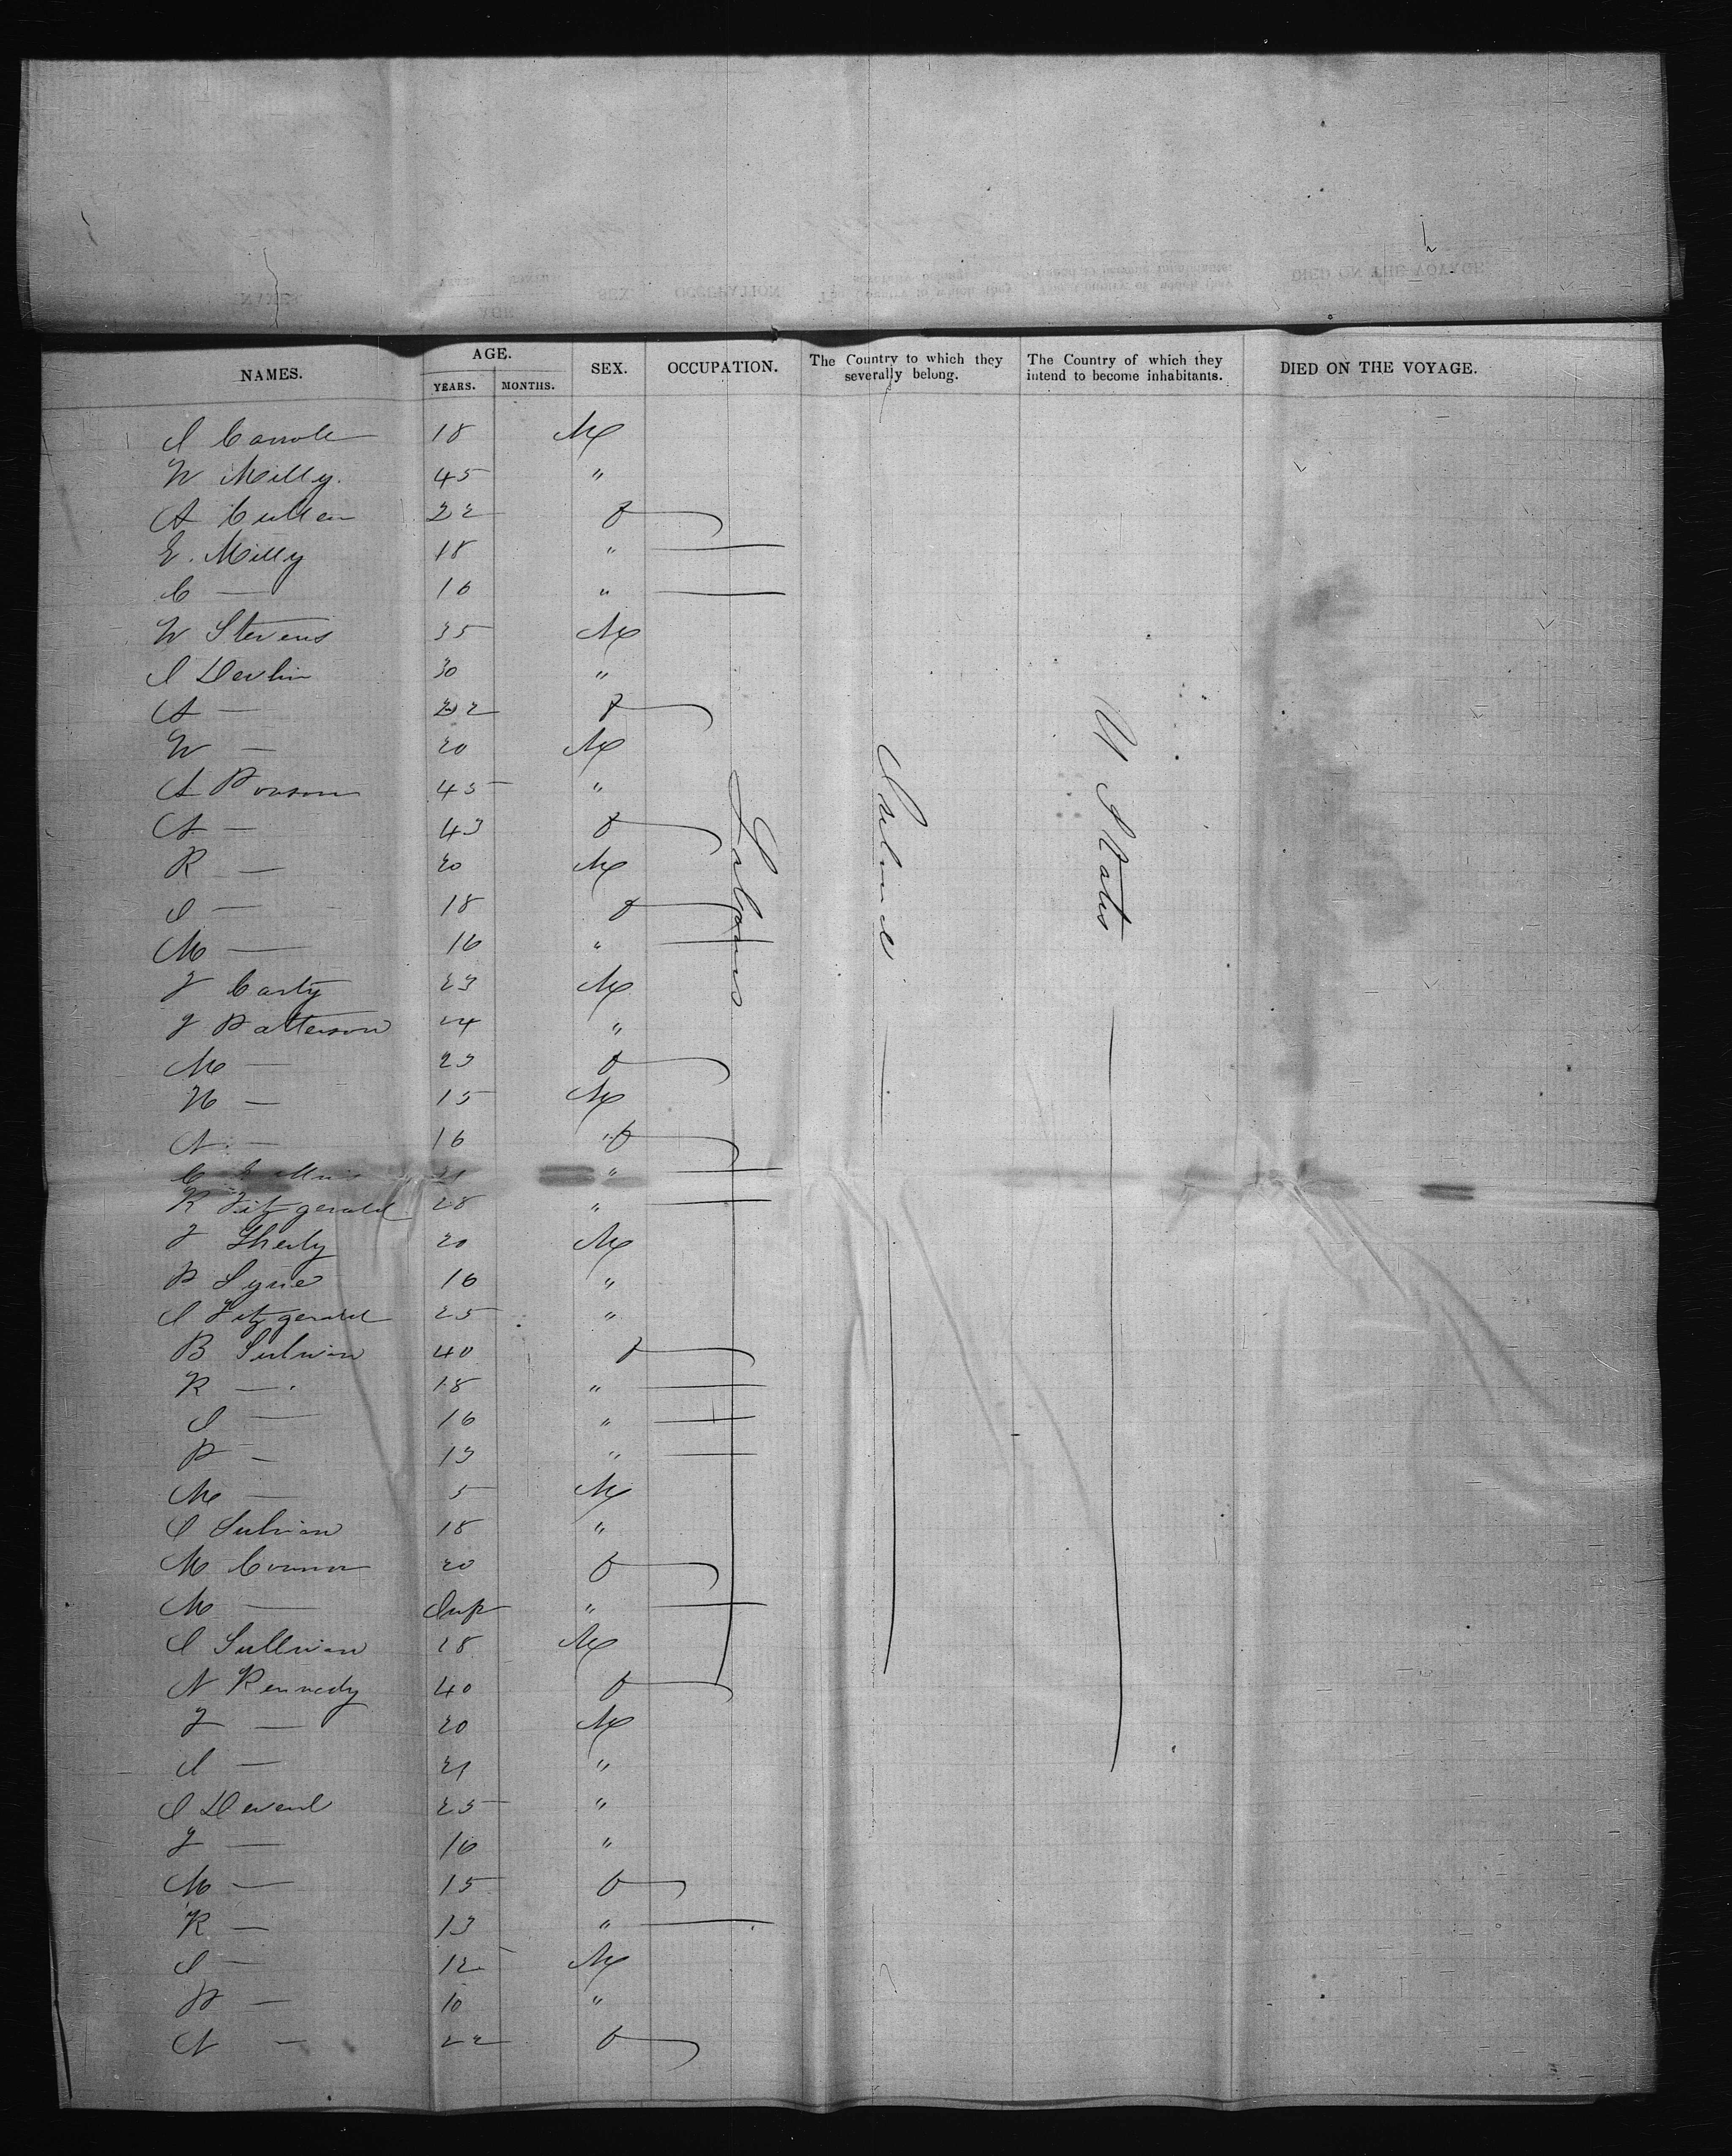 NAMES. AGE. SEX. OCCUPATION. The Country to which they severally belong. The Country of which they intend to become inhabitants. DIED ON THE VOYAGE.
YEARS. MONTHS.
Labourers
Ireland
U States
J Carroll 18 M
W Milly. 45 "
A Cullen 22 F
E. Milly 18 " —
C — 16 " —
W Stevens 35 M
J Devlin 30 "
A — 22 F
W — 20 M
A 45 "
A — 43 F
R — 20 M
J — 18 F
M — 16 " —
J Carty 23 M
J Patterson 24 "
M — 23 F
H — 15 M
A — 16 F
C " —
K Fitzgerald 28 " —
J 20 M
P Lyne 16 "
J Fitzgerald 25 "
B Sulivan 40 F
K — 18 " —
J — 16 " —
P — 13 " —
M — 5 M
J Sulivan 18 "
M Connor 20 F
M — Inf " —
J Sullivan 28 M
N Kennedy 40 F
J — 20 M
J — 21 "
J 25 "
J — 16 "
M — 15 F
K — 13 " —
J — 12 M
P — 10 "
N — 22 F